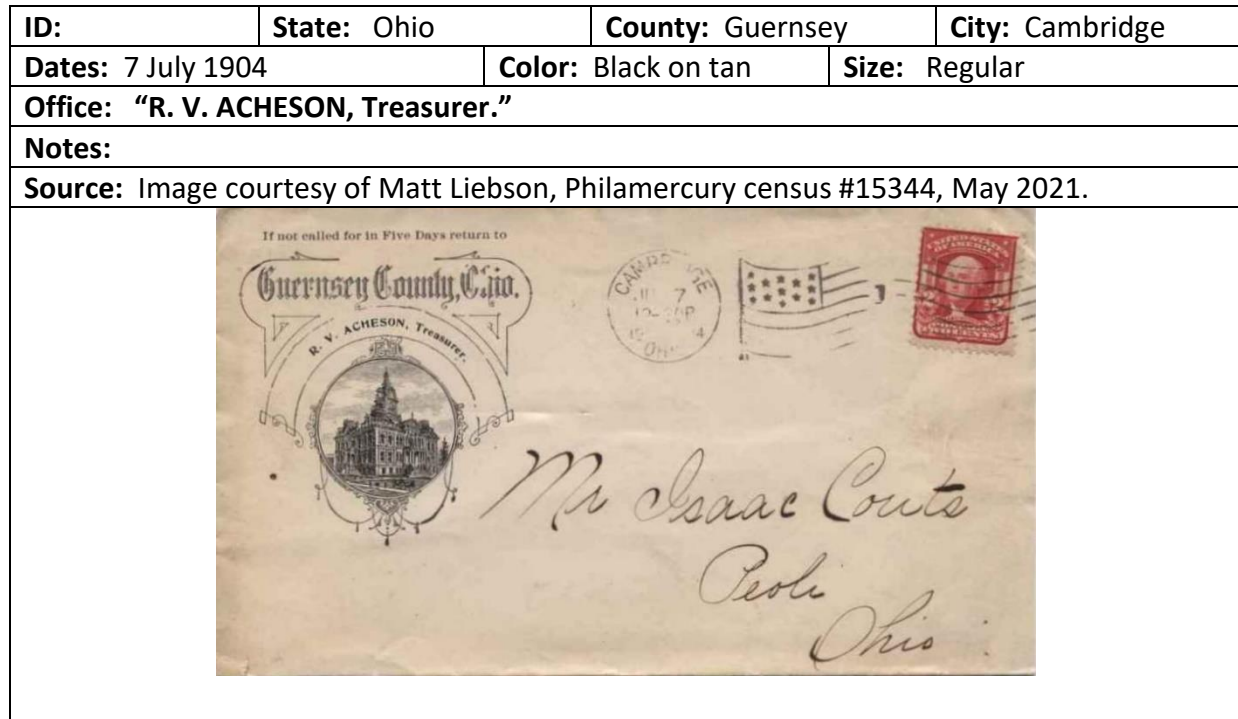 ID: State: Ohio County: Guernsey City: Cambridge
Dates: 7 July 1904 Color: Black on tan Size: Regular
Office: “R. V. ACHESON, Treasurer.”
Notes:
Source: Image courtesy of Matt Liebson, Philamercury census #15344, May 2021.
If not called for in Five Days return to
Guernsey County, Ohio.
R. V. ACHESON, Treasurer.
7
UNITED STATES
OF AMERICA
2 2
Mr Isaac Couts
Peoli
Ohio